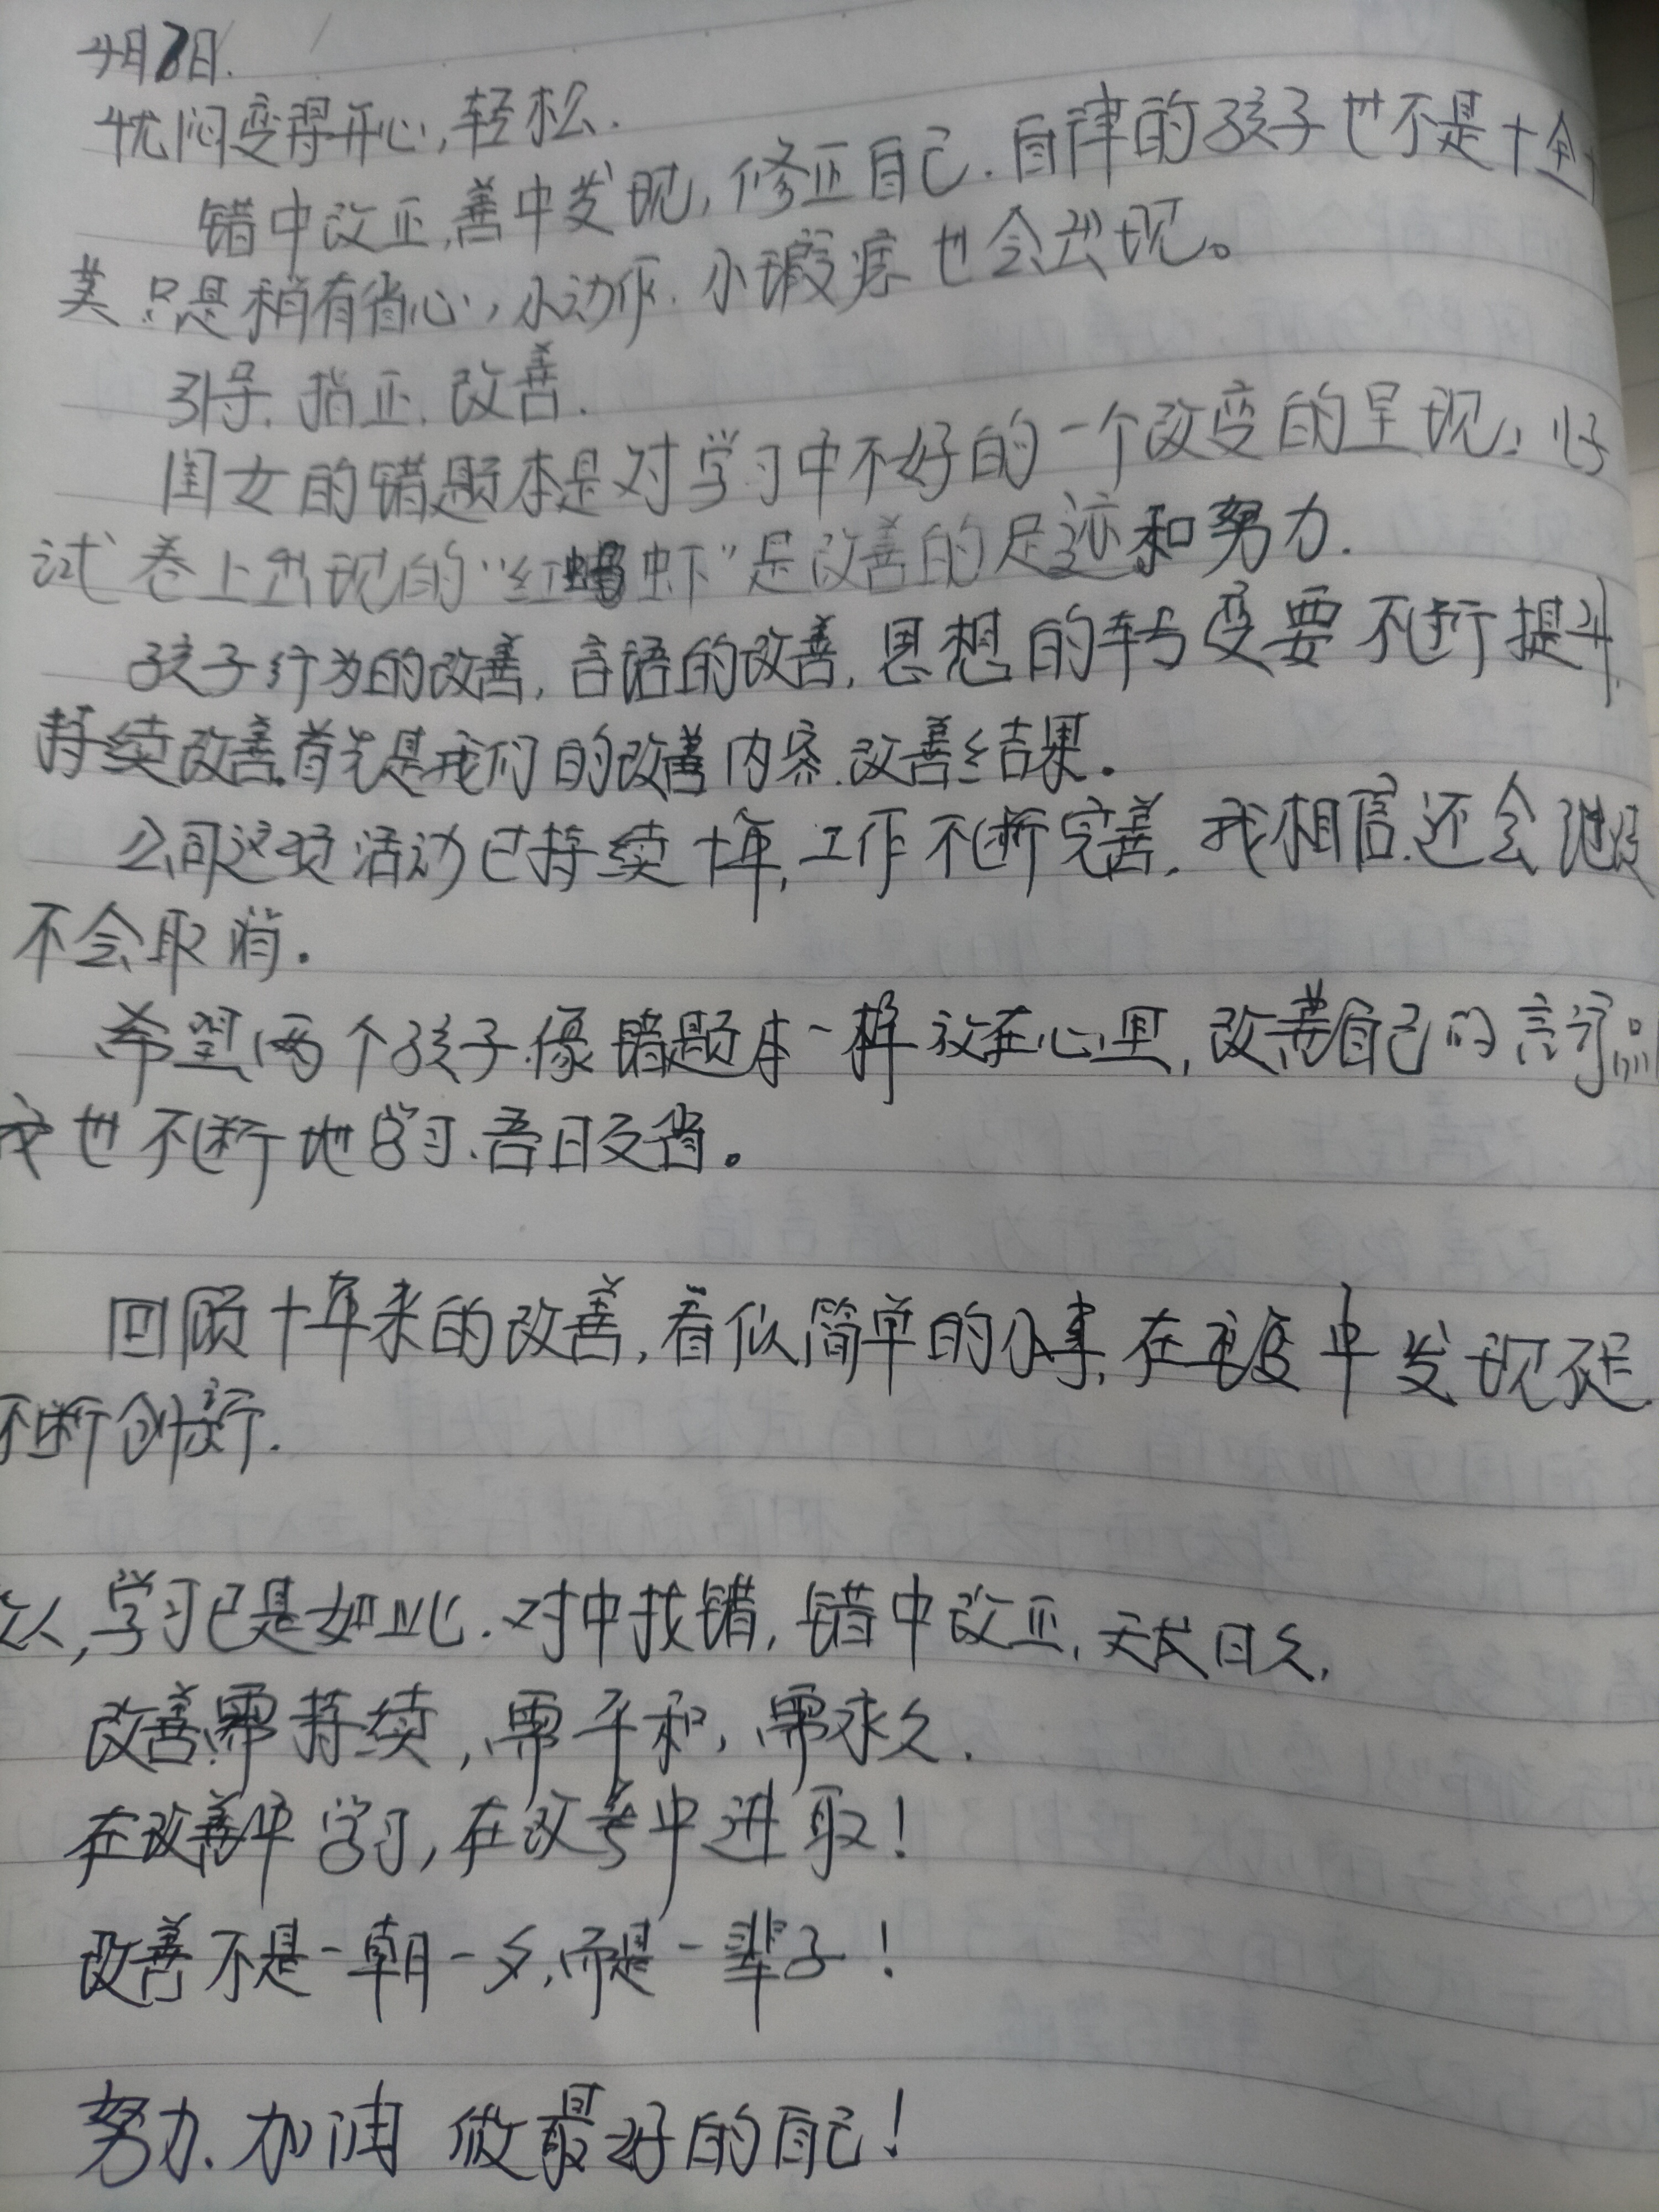 4月8日.
忧闷变得开心,轻松.
错中改正,善中发现,修正自己.自律的孩子也不是十全
美.只是稍有省心,小动作.小瑕疵也会出现。
引导.指正.改善.
闺女的错题本是对学习中不好的一个改变的呈现;
试卷上出现的“红虾”是改善的足迹和努力.
孩子行为的改善,言语的改善,思想的转变要不断提升,
持续改善.首先是我们的改善内容.改善结果.
公司这项活动已持续十年,工作不断完善.我相信.还会
不会取消.
希望两个孩子.像错题本一样放在心里,改善自己的言行
我也不断地学习.吾日反省。
回顾十年来的改善,看似简单的小事,在重复中发现
不断创新.
学习已是如此.对中找错,错中改正,天长日久,
改善需持续,需平和,需永久.
在改善中学习,在改善中进取!
改善不是一朝一夕,而是一辈子!
努力.加油 做最好的自己!